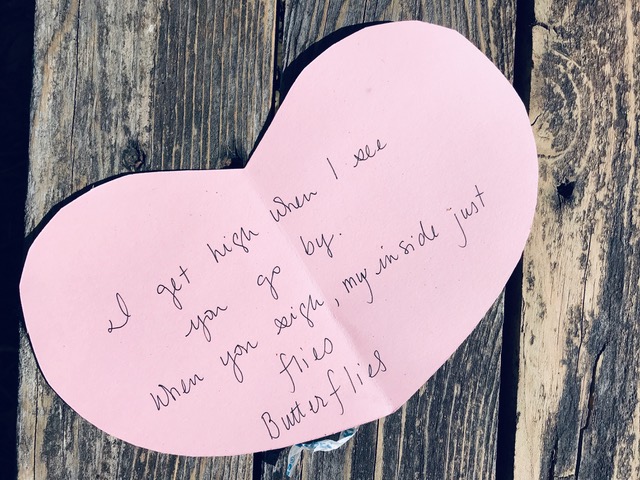 I get high when I see
you go by.
When you sigh, my inside just
flies
Butterflies